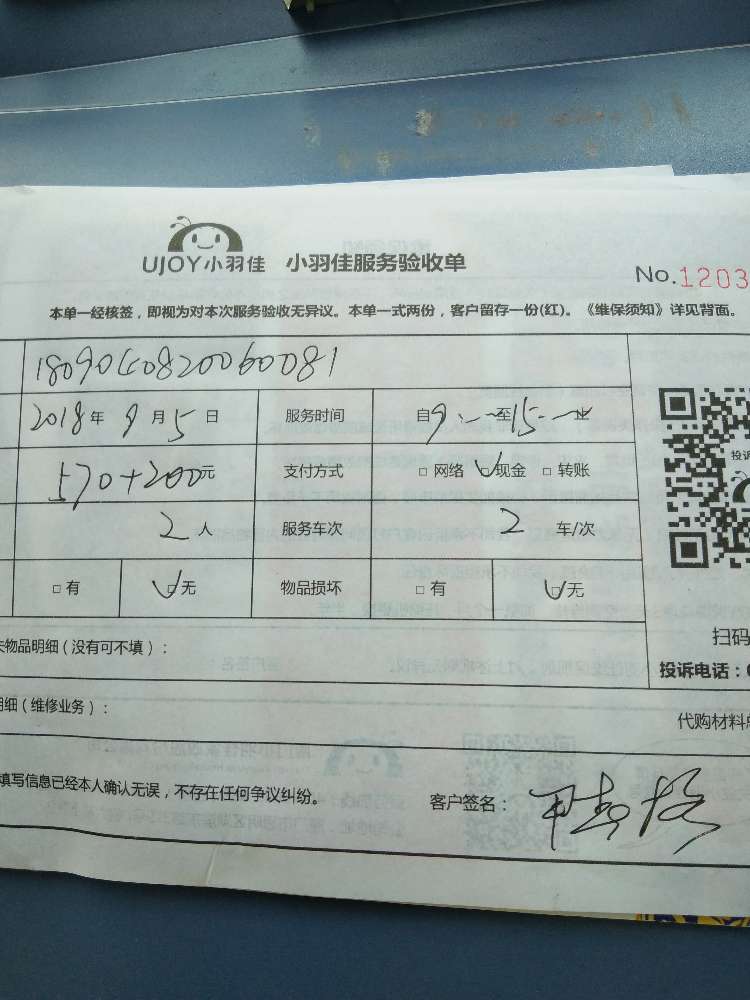 UJOY小羽佳 小羽佳服务验收单
No.1203
本单一经核签，即视为对本次服务验收无异议。本单一式两份，客户留存一份(红)。《维保须知》详见背面。
2018年9月5日 服务时间 自9:一至15:一
570+200元 支付方式 □网络 □现金 □转账
2人 服务车次 2车/次
□有 □无 物品损坏 □有 □无
失物品明细（没有可不填）：
扫码
投诉电话：0
明细（维修业务）：
代购材料总
填写信息已经本人确认无误，不存在任何争议纠纷。
客户签名：